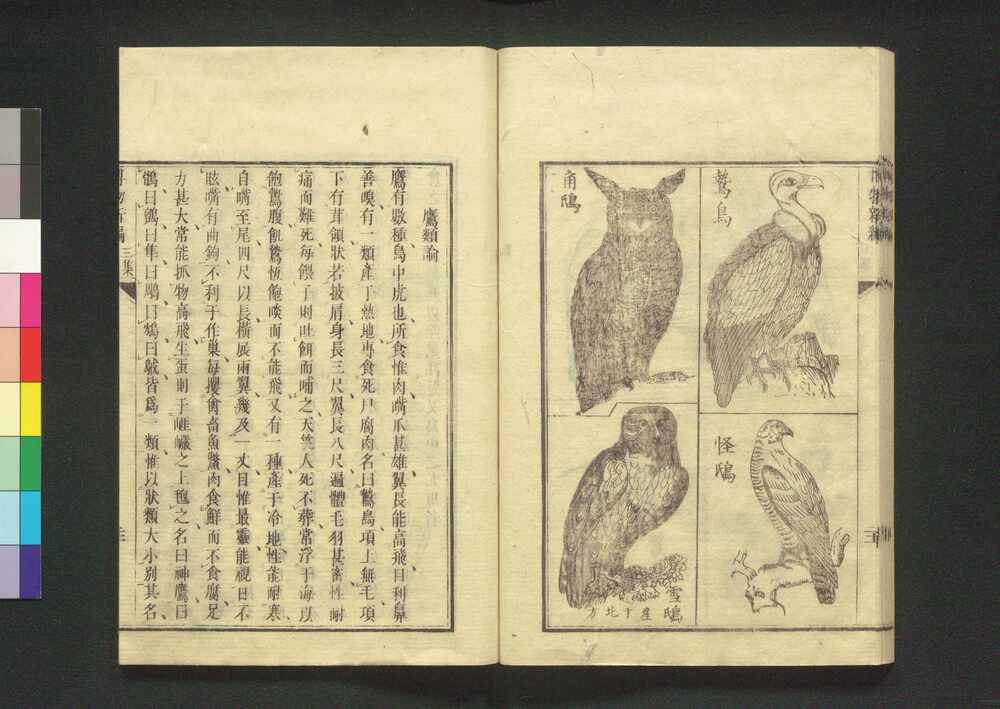 鷲鳥
角鴟
怪鴟
雪鴟
產于北方
鷹類論
鷹有數種鳥中虎也所食惟肉嘴爪甚雄翼長能高飛目利鼻
善嗅有一類產于熱地專食死尸腐肉名曰鷲鳥項上無毛項
下有茸領狀若披肩身長三尺翼長八尺遍體毛羽甚密性耐
痛而難死每餵子則吐餌而哺之天竺人死不葬常浮于海以
飽鷲腹飢鷲恆飽啖而不能飛又有一種產于冷地性能耐寒
自嘴至尾四尺以長橫展兩翼幾及一丈目惟最靈能視日不
眩嘴有曲鉤不利于作巢每攫禽畜魚鱉肉食鮮而不食腐足
力甚大常能抓物高飛生蛋則于崕巗之上毡之名曰神鷹曰
鶻曰隼曰鵰曰皆爲一類惟以狀類大小別其名
博物新編 三集